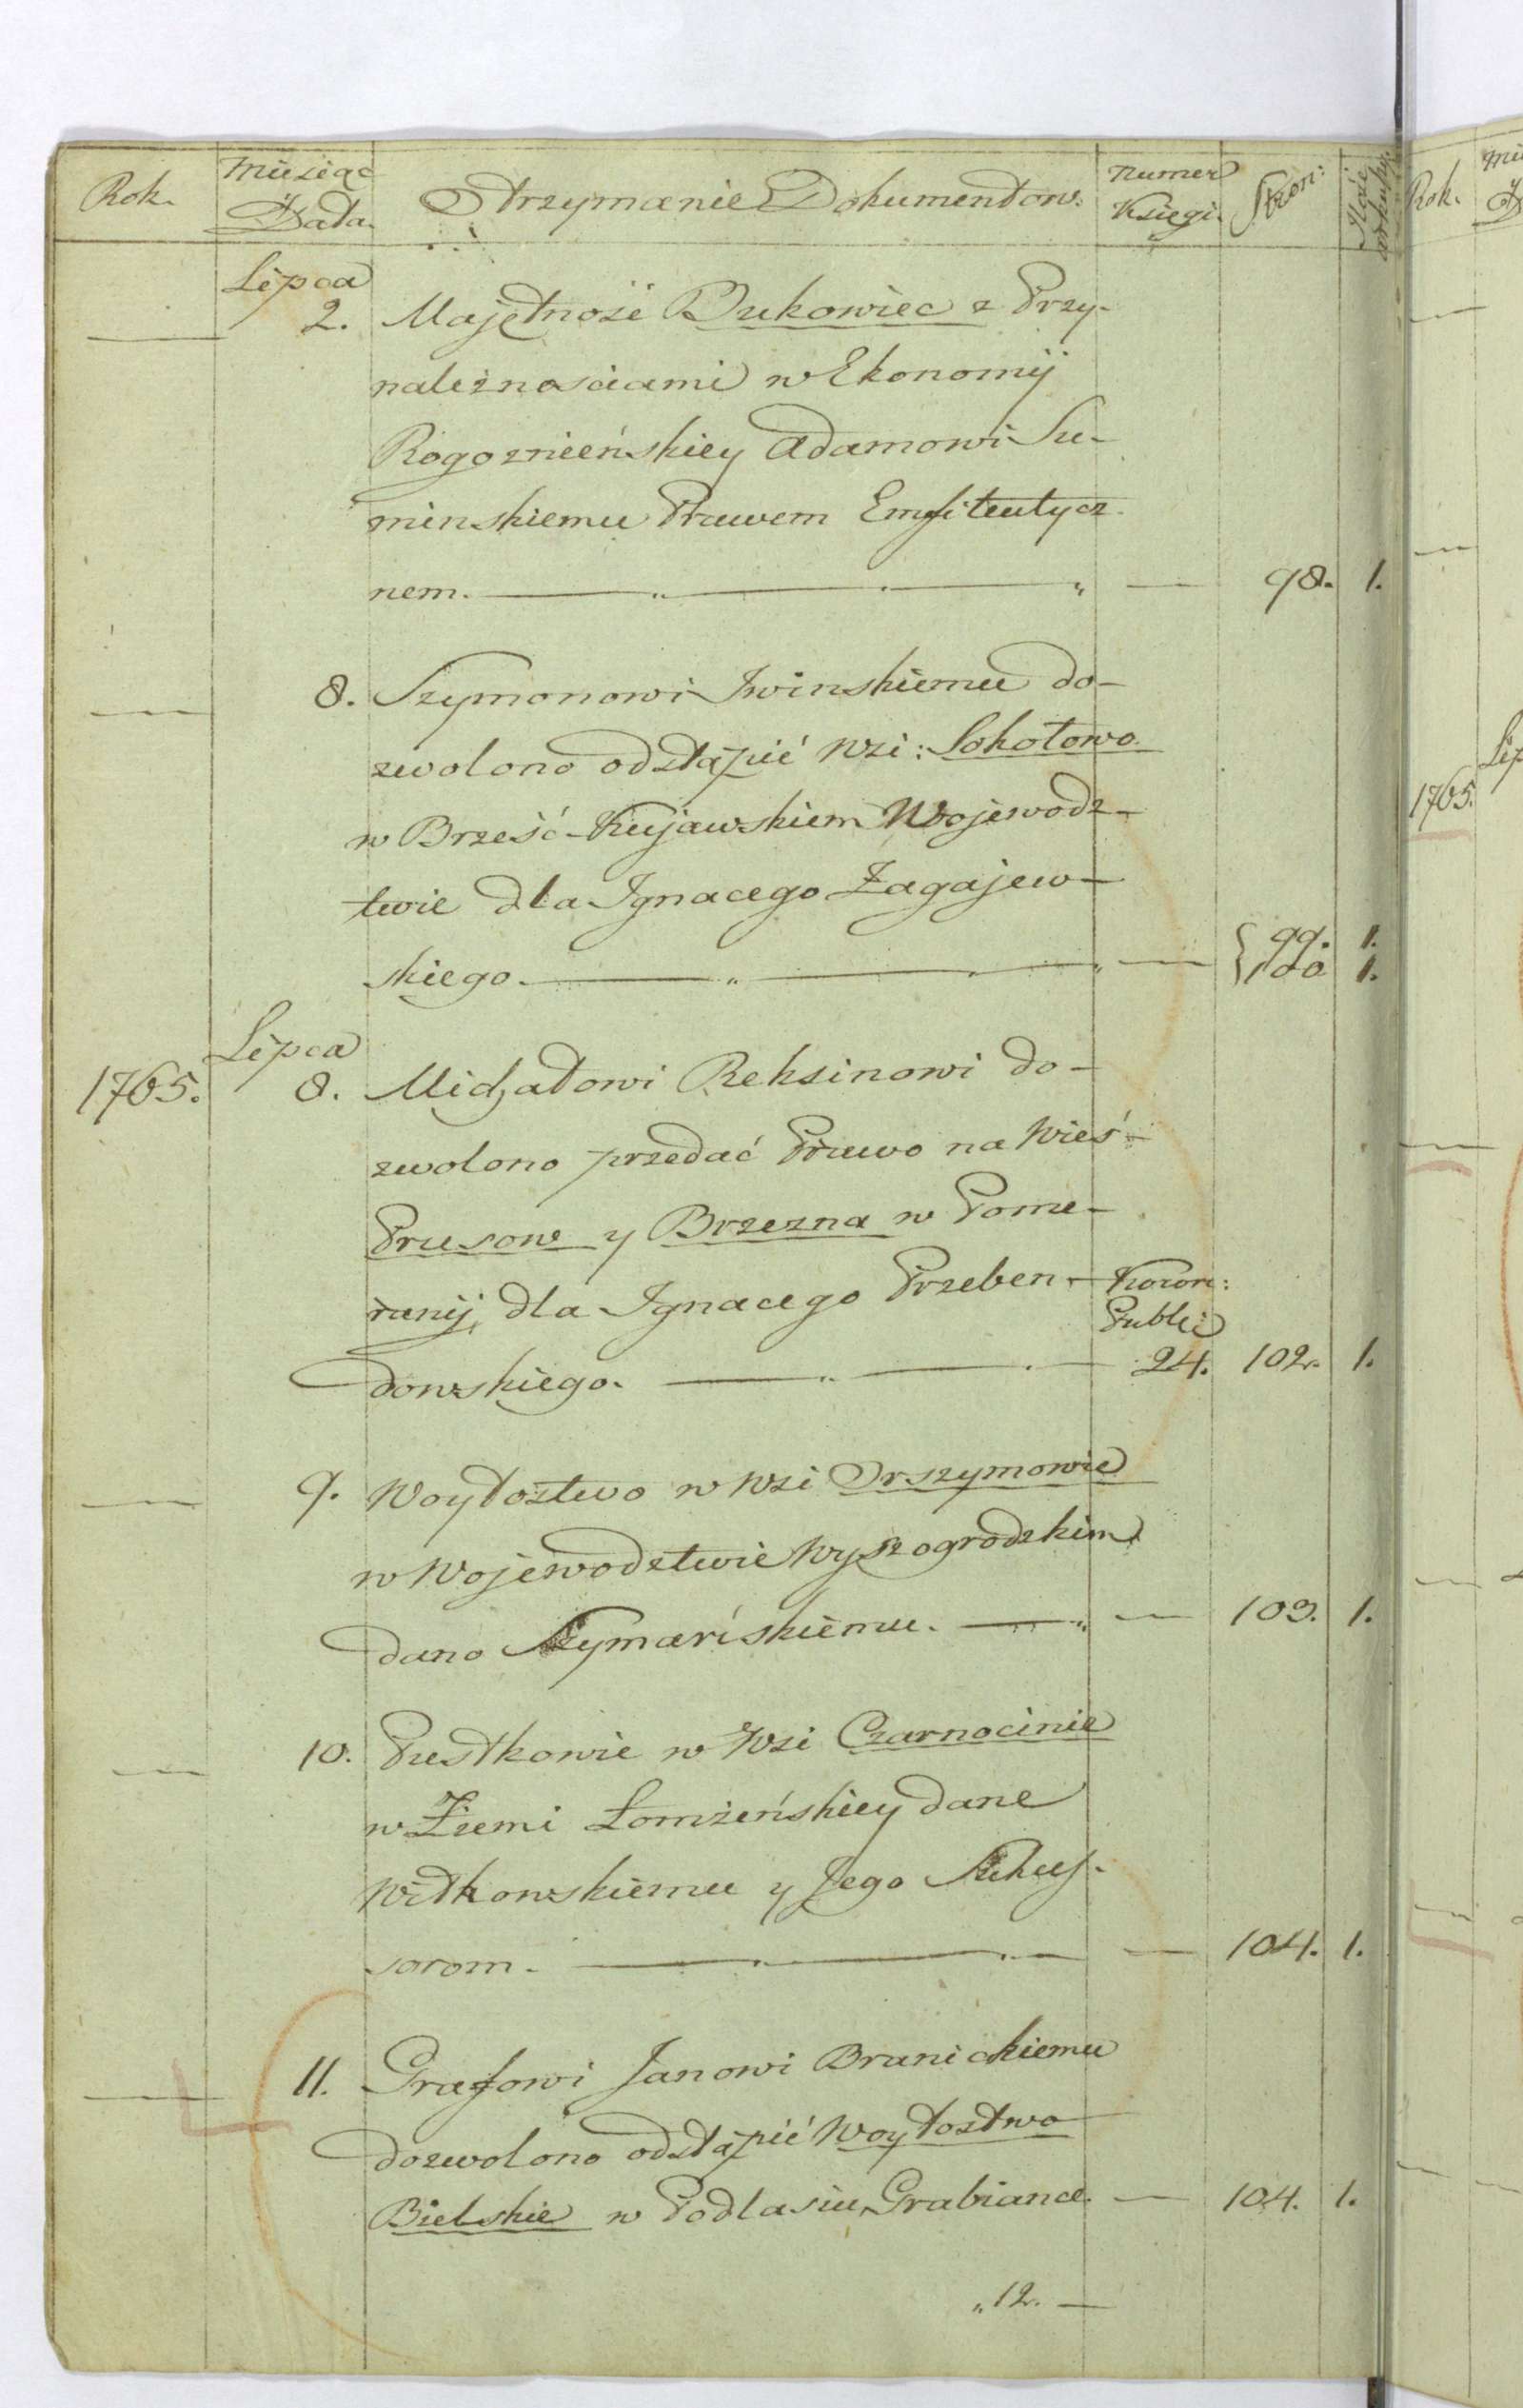 Rok. Miesiąc Data. Otrzymanie Dokumentow. Numer Księgi. Stron: Ilość
Lipca
2. Majętność Bukowiec z Przy-
należnościami w Ekonomij
Rogoznieńskiey Adamowi Su-
minskiemu Prawem Emfiteutycz-
nem. — „ — „ — 98. 1.
8. Szymonowi Iwinskiemu do-
zwolono odstąpić Wsi: Sokołowo
w Brześć-Kujawskiem Wojewodz-
twie dla Ignacego Zagajew-
skiego. — „ — „ — { 99. 1.
100 1.
Lipca
1765. 8. Michałowi Reksinowi do-
zwolono przedać Prawo na Wieś
Prusow y Brzezna w Pome-
ranij, dla Ignacego Przeben- Koron:
Publi:
dowskiego. — „ — 24. 102. 1.
9. Woytostwo w Wsi Orszymowie
w Wojewodztwie Wyszogrodzkim
dano Szymańskiemu. — „ — 103. 1.
10. Pustkowie w Wsi Czarnocinie
w Ziemi Łomżeńskiey dane
Witkowskiemu y Jego Sukces-
sorom. — „ — „ — 104. 1.
11. Grafowi Janowi Branickiemu
dozwolono odstąpić Woytostwo
Bielskie w Podlasiu, Grabiance. — 104. 1.
„ 12. —
Rok.
Lip
1765.